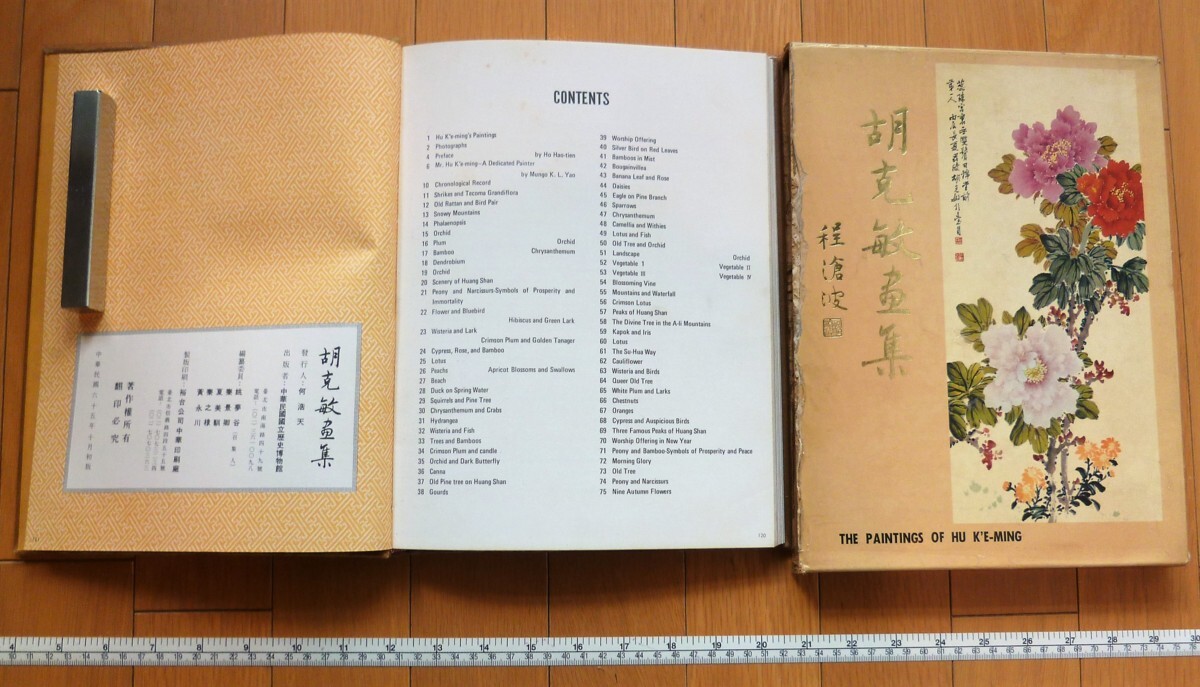 CONTENTS
1 Hu K'e-ming's Paintings
2 Photographs
4 Preface by Ho Hao-tien
6 Mr. Hu K'e-ming—A Dedicated Painter
by Mungo K. L. Yao
10 Chronological Record
11 Shrikes and Tecoma Grandiflora
12 Old Rattan and Bird Pair
13 Snowy Mountains
14 Phalaenopsis
15 Orchid
16 Plum Orchid
17 Bamboo Chrysanthemum
18 Dendrobium
19 Orchid
20 Scenery of Huang Shan
21 Peony and Narcissus-Symbols of Prosperity and
Immortality
22 Flower and Bluebird
Hibiscus and Green Lark
23 Wisteria and Lark
Crimson Plum and Golden Tanager
24 Cypress, Rose, and Bamboo
25 Lotus
26 Peachs Apricot Blossoms and Swallows
27 Beach
28 Duck on Spring Water
29 Squirrels and Pine Tree
30 Chrysanthemum and Crabs
31 Hydrangea
32 Wisteria and Fish
33 Trees and Bamboos
34 Crimson Plum and candle
35 Orchid and Dark Butterfly
36 Canna
37 Old Pine tree on Huang Shan
38 Gourds
39 Worship Offering
40 Silver Bird on Red Leaves
41 Bamboos in Mist
42 Bougainvillea
43 Banana Leaf and Rose
44 Daisies
45 Eagle on Pine Branch
46 Sparrows
47 Chrysanthemum
48 Camellia and Withies
49 Lotus and Fish
50 Old Tree and Orchid
51 Landscape Orchid
52 Vegetable I Vegetable II
53 Vegetable III Vegetable IV
54 Blossoming Vine
55 Mountains and Waterfall
56 Crimson Lotus
57 Peaks of Huang Shan
58 The Divine Tree in the A-li Mountains
59 Kapok and Iris
60 Lotus
61 The Su-Hua Way
62 Cauliflower
63 Wisteria and Birds
64 Queer Old Tree
65 White Plum and Larks
66 Chestnuts
67 Oranges
68 Cypress and Auspicious Birds
69 Three Famous Peaks of Huang Shan
70 Worship Offering in New Year
71 Peony and Bamboo-Symbols of Prosperity and Peace
72 Morning Glory
73 Old Tree
74 Peony and Narcissus
75 Nine Autumn Flowers
120
胡克敏畫集
發行人：何浩天
出版者：中華民國國立歷史博物館
編纂委員：姚夢谷
夏美馴
黃永川
製版印刷：裕台公司中華印刷廠
著作權所有
翻印必究
中華民國六十五年十月初版
胡克敏畫集
程滄波
THE PAINTINGS OF HU K'E-MING